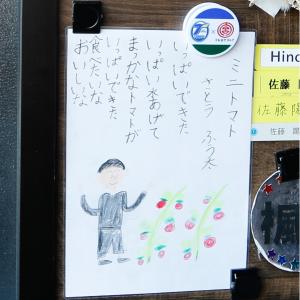 ミニトマト
さとう ふう太
いっぱいできた
いっぱい水あげて
まっかなトマトが
いっぱいできた
食べたいな
おいしいな
Hino
佐藤
佐藤陽
佐藤
楓